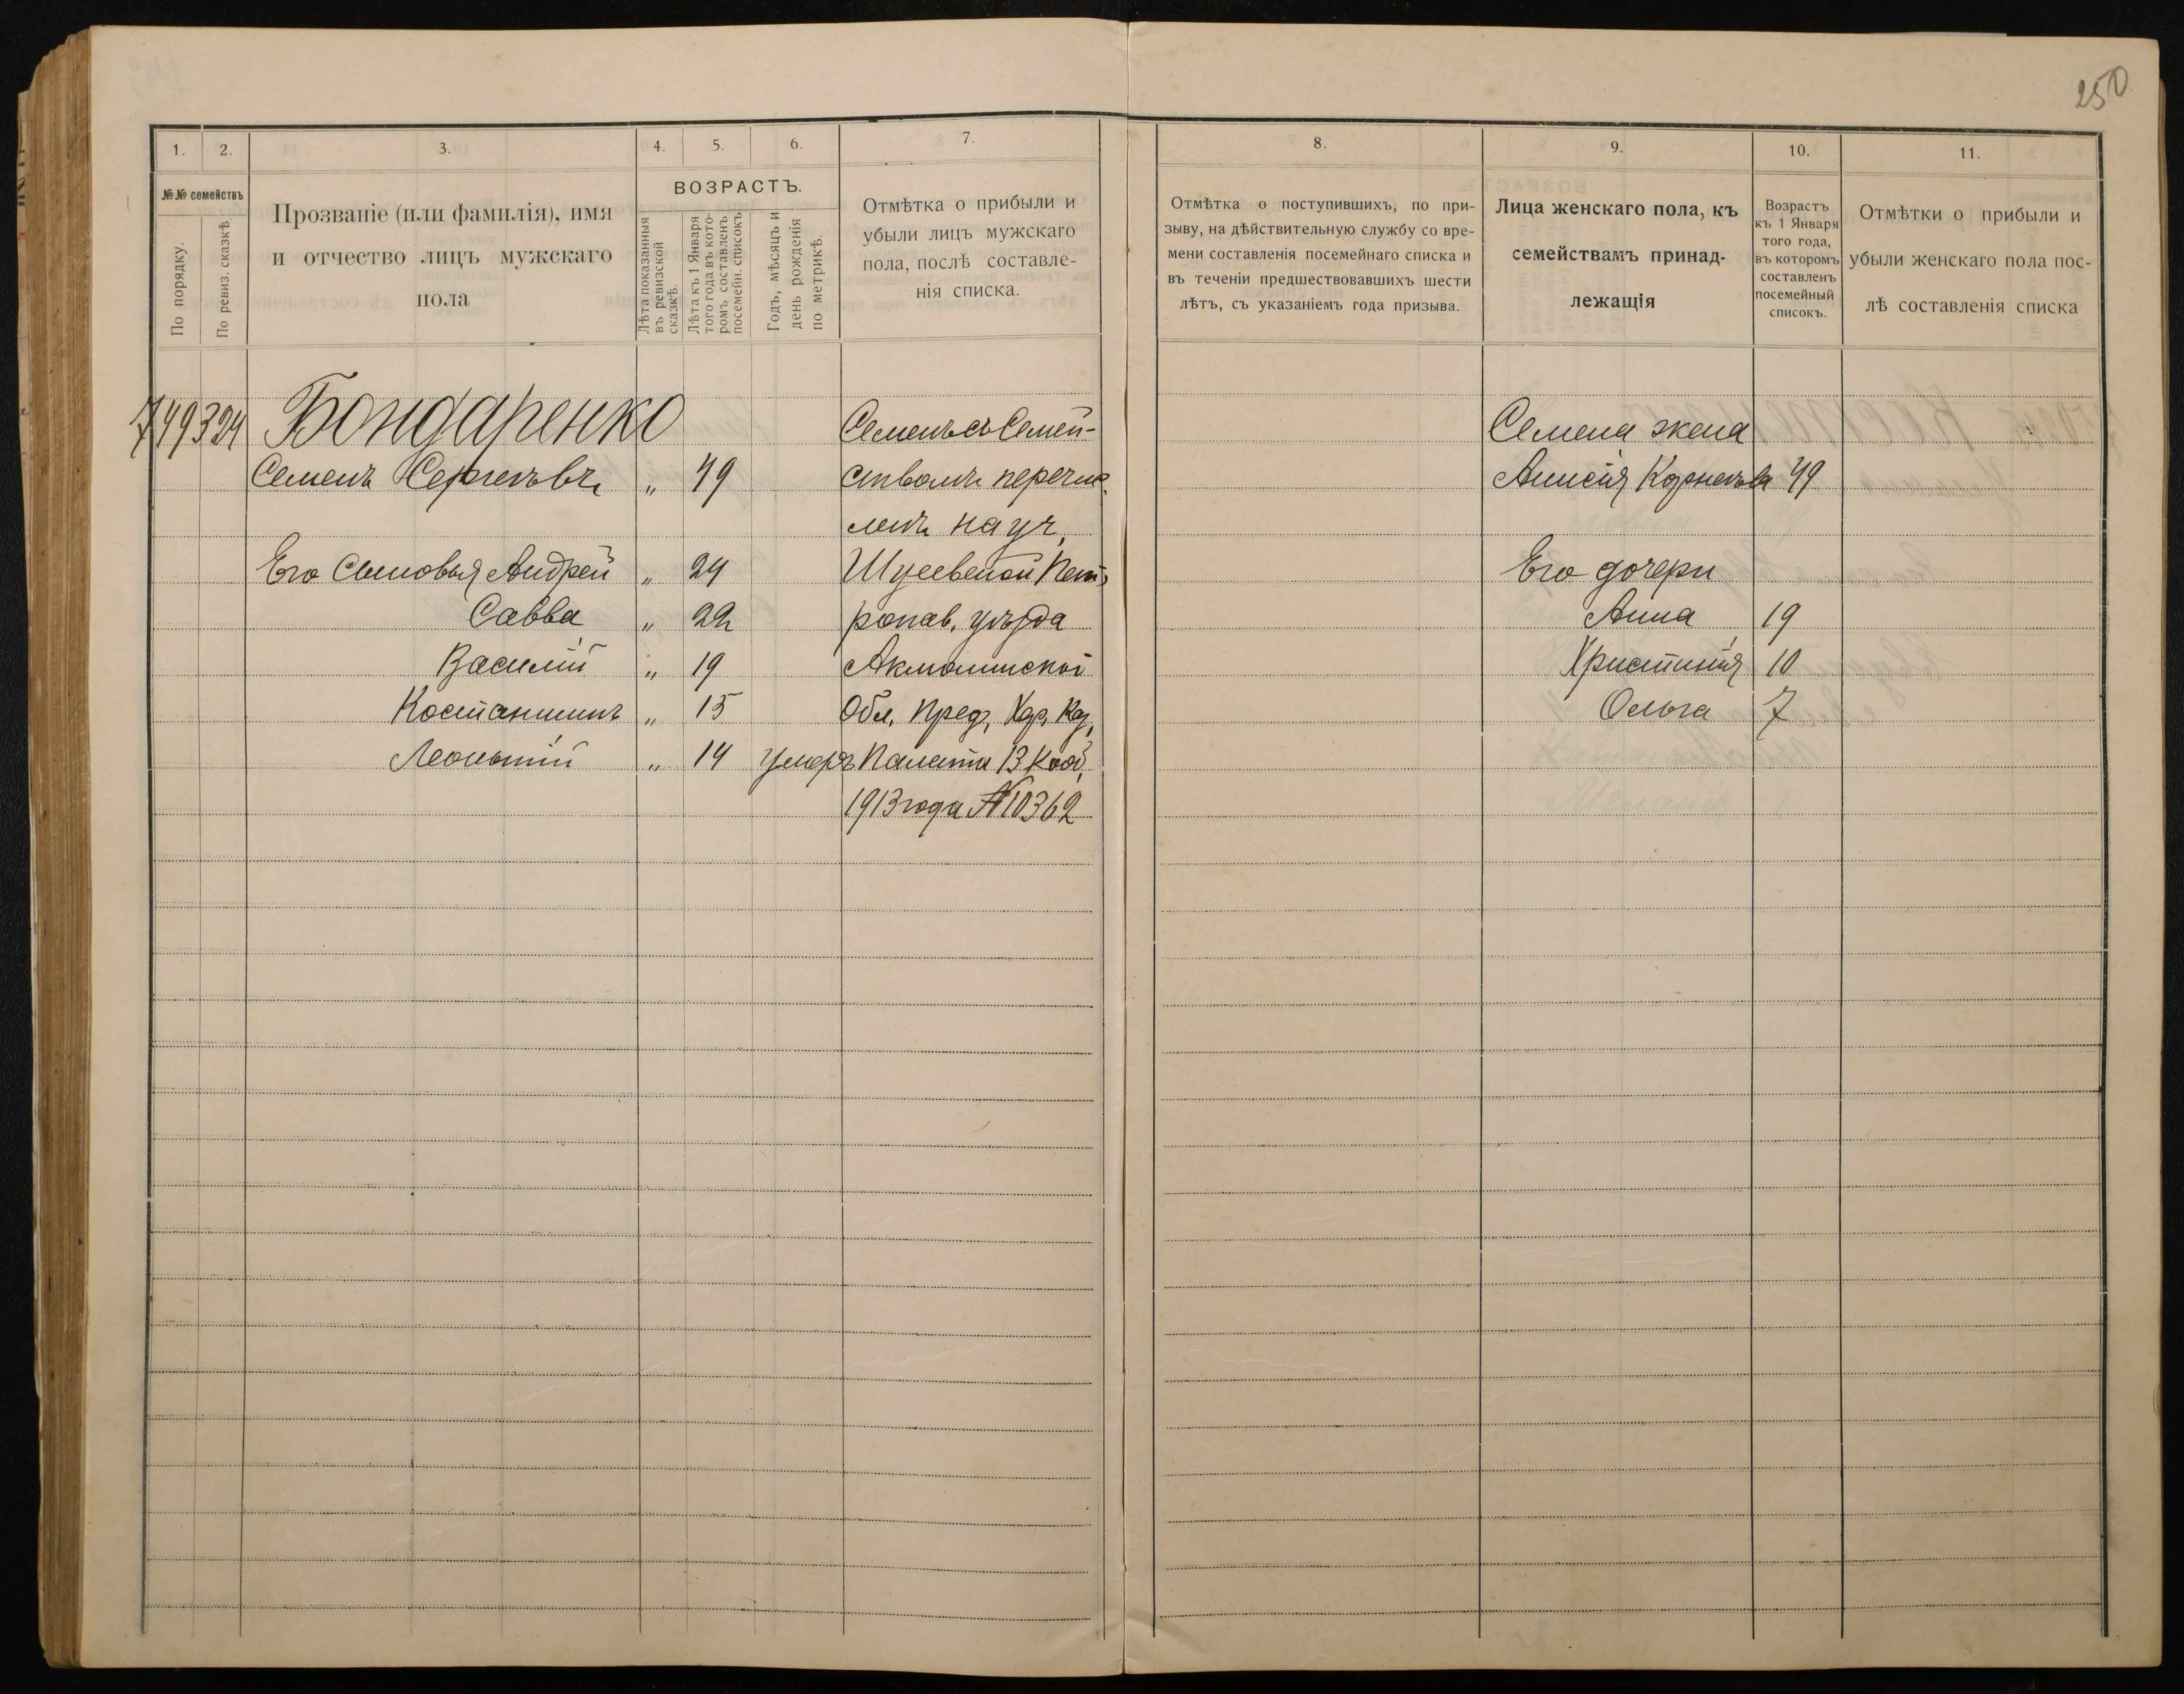 250
1. 2. 3. 4. 5. 6. 7.
№№ семействъ
По порядку.
По ревиз. сказкѣ.
Прозваніе (или фамилія), имя
и отчество лицъ мужскаго
пола
ВОЗРАСТЪ.
Лѣта показанныя
въ ревизской
сказкѣ.
Лѣта къ 1 Января
того года въ кото-
ромъ составленъ
посемейн. списокъ
Годъ, мѣсяцъ и
день рожденія
по метрикѣ.
Отмѣтка о прибыли и
убыли лицъ мужскаго
пола, послѣ составле-
нія списка.
749 324 Бондаренко
Семенъ Сергѣевъ „ 49
Его сыновья Андрей „ 24
Савва „ 22
Василій „ 19
Костантинъ „ 15
Леонтій „ 14 умеръ
Семенъ съ Семей-
ствомъ перечис-
ленъ на уч.
Пет-
ропав. уѣзда
Акмолинской
Обл. пред. Хар. Каз.
Палаты 13
1913 года № 10362
8. 9. 10. 11.
Отмѣтка о поступившихъ, по при-
зыву, на дѣйствительную службу со вре-
мени составленія посемейнаго списка и
въ теченіи предшествовавшихъ шести
лѣтъ, съ указаніемъ года призыва.
Лица женскаго пола, къ
семействамъ принад-
лежащія
Возрастъ
къ 1 Января
того года,
въ которомъ
составленъ
посемейный
списокъ.
Отмѣтки о прибыли и
убыли женскаго пола пос-
лѣ составленія списка
Семена жена
Анисія Корнеева 49
Его дочери
Анна 19
Христинія 10
Ольга 7